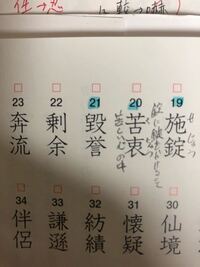 任→恣
に
19 施錠
せじょう
錠に鍵をかけること
20 苦衷
くちゅう
苦しい心の中
21 毀誉
22 剰余
23 奔流
30 仙境
31 懐疑
32 紡績
33 謙遜
34 伴侶